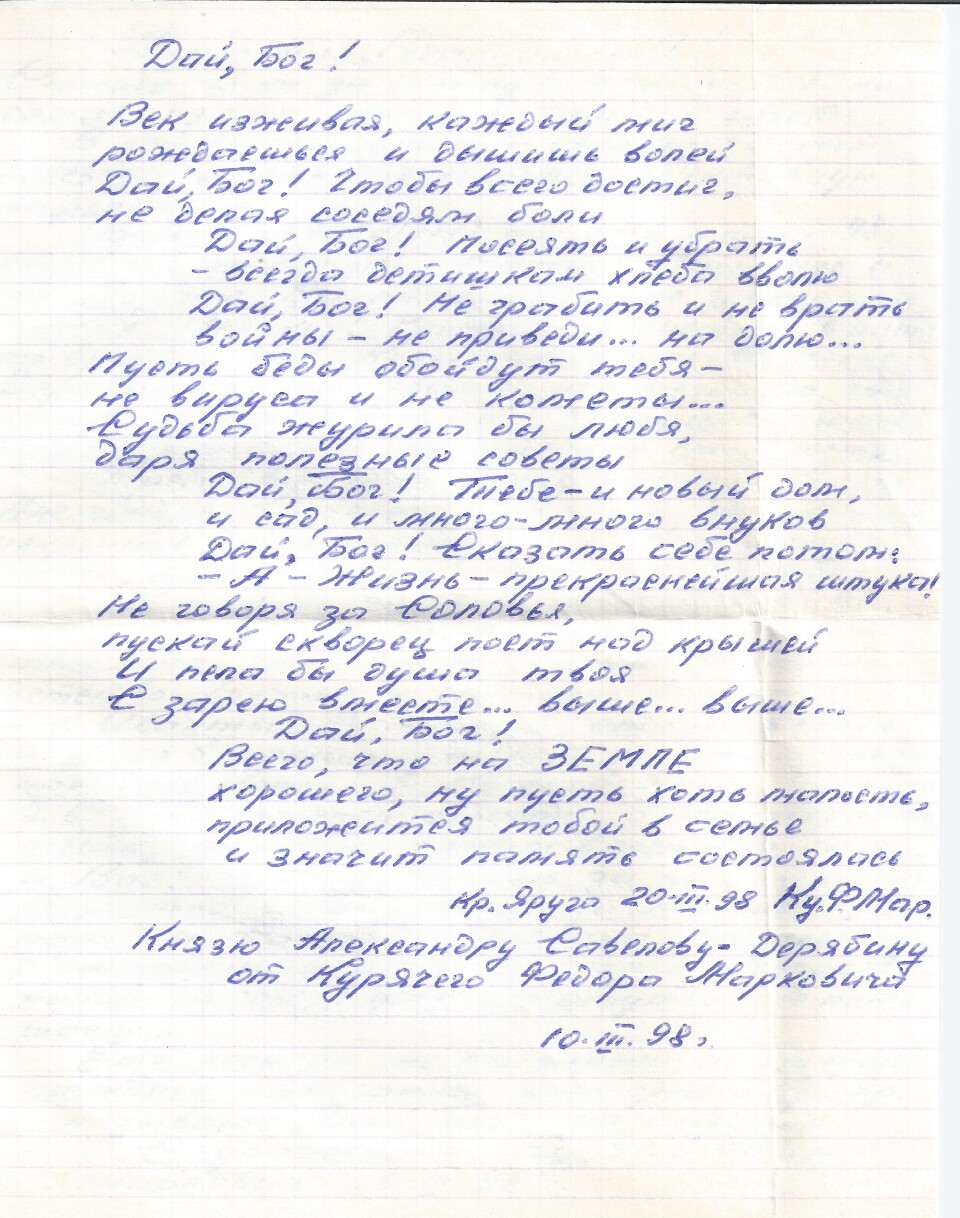 Дай, Бог!
Век изживая, каждый миг
рождаешься и дышишь волей
Дай, Бог! Чтобы всего достиг,
не делая соседям боли
Дай, Бог! Посеять и убрать
- всегда детишкам хлеба вволю
Дай, Бог! Не грабить и не врать
войны - не приведи... на долю...
Пусть беды обойдут тебя -
не вируса и не кометы...
Судьба журила бы любя,
даря полезные советы
Дай, Бог! Тебе - и новый дом,
и сад, и много-много внуков
Дай, Бог! Сказать себе потом:
- А - Жизнь - прекраснейшая штука!
Не говоря за Соловья,
пускай скворец поет над крышей
И пела бы душа твоя
С зарею вместе... выше... выше...
Дай, Бог!
Всего, что на ЗЕМЛЕ
хорошего, ну пусть хоть малость,
приложится тобой в семье
и значит память состоялась
Кр. Яруга 20.III.98 Ку.Ф.Мар.
Князю Александру Савелову-Дерябину
от Курячего Федора Марковича
10.III.98г.